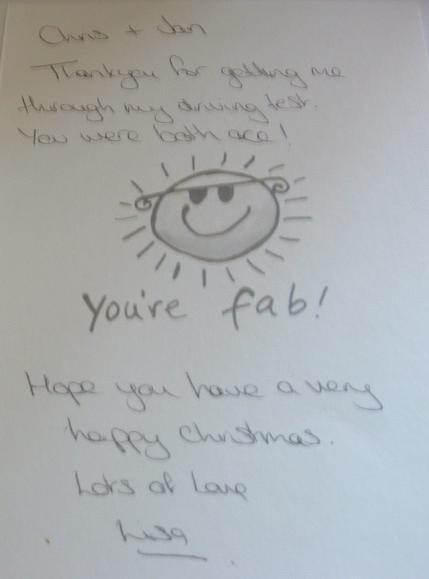 Chris + Jan
Thankyou for getting me
through my driving test.
You were both ace!
You're fab!
Hope you have a very
happy Christmas.
Lots of Love
Lisa